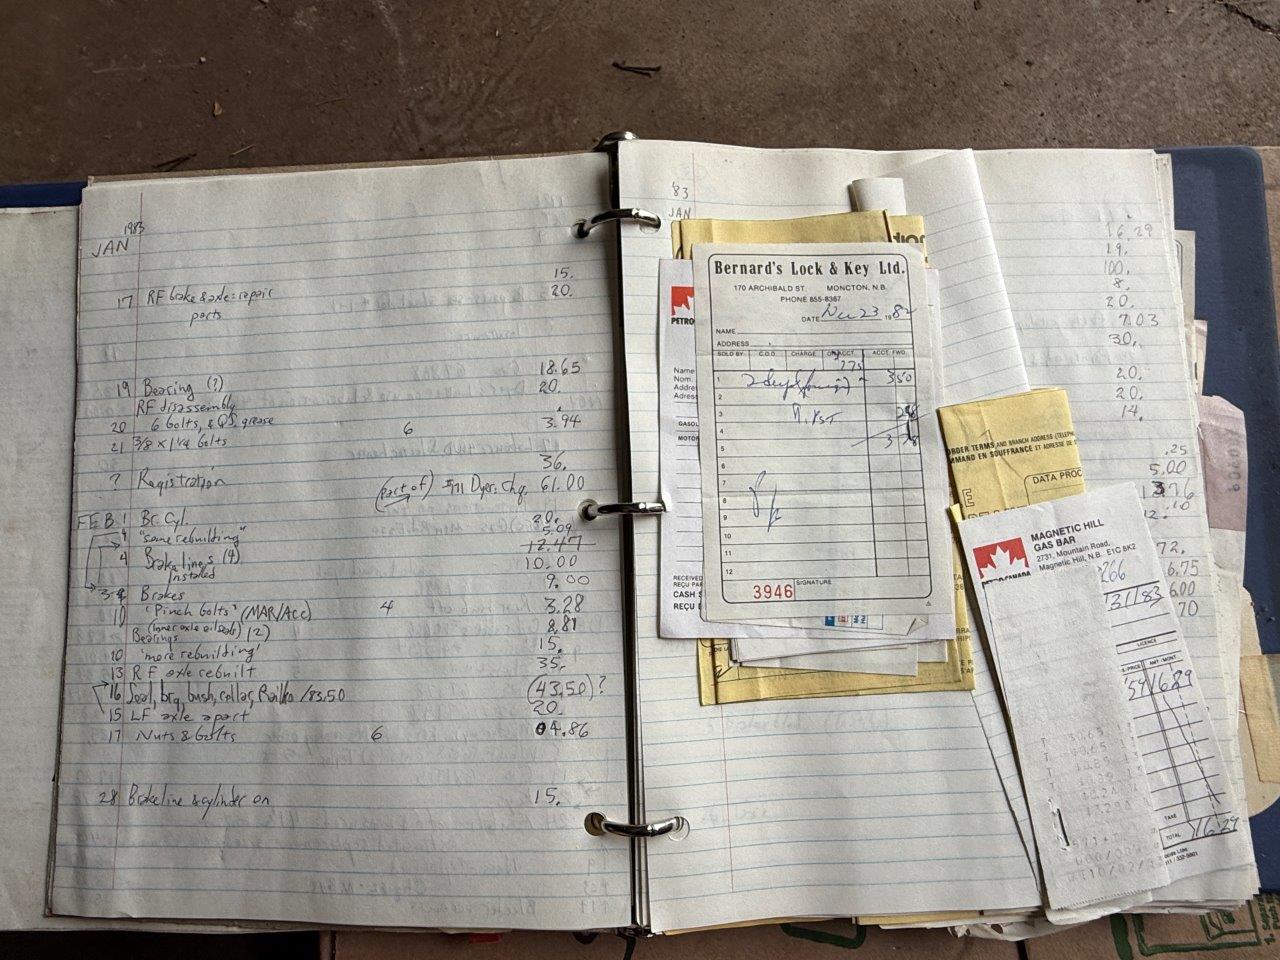 1983
JAN
15.
17 RF brake & axle: repair 20.
parts
19 Bearing (?) 18.65
RF disassembly 20.
20 6 bolts, & QS. grease 6
21 3/8 x 1 1/4 bolts 3.94
36.
? Registration (part of) Dyer: Chq. 61.00
FEB 1 Br. Cyl. 20.
4 "some rebuilding" 5.09
12.47
4 Brake lines (4) 10.00
installed
3-4 Brakes 9.00
10 'Pinch bolts' (MAR/Acc) 4 3.28
(Inner axle oil seals) (2) 8.81
Bearings
10 'more rebuilding' 15.
13 RF axle rebuilt 35.
16 Seal, brg, bush, collar, Railko /83.50 (43.50)?
15 LF axle apart 20.
17 Nuts & bolts 6 4.86
28 Brakeline & cylinder on 15.
'83
JAN
16.29
19.
100.
8.
20.
7.03
30.
20.
20.
14.
.25
5.00
.10
12.
72.
6.75
6.00
70
Bernard's Lock & Key Ltd.
170 ARCHIBALD ST. MONCTON, N.B.
PHONE 855-8367
DATE 23 1982
NAME
ADDRESS
SOLD BY C.O.D. CHARGE ON ACCT. ACCT. FWD.
1 350
2
3
4
5
6
7
8
9
10
11
12
3946 SIGNATURE
PETRO
Name
Nom.
Addre
Adress
GASOL
MOTOR
RECEIVED
REÇU PA
CASH S
REÇU D
ORDER TERMS AND BRANCH ADDRESS (TELEPH
MMAND EN SOUFFRANCE ET ADRESSE DE
DATA PROC
MAGNETIC HILL
GAS BAR
2731, Mountain Road,
Magnetic Hill, N.B. E1C 8K2
PETRO-CANADA
266
31/83
LICENCE
PRICE AMT - MONT.
1629
TAXE
TOTAL 16.29